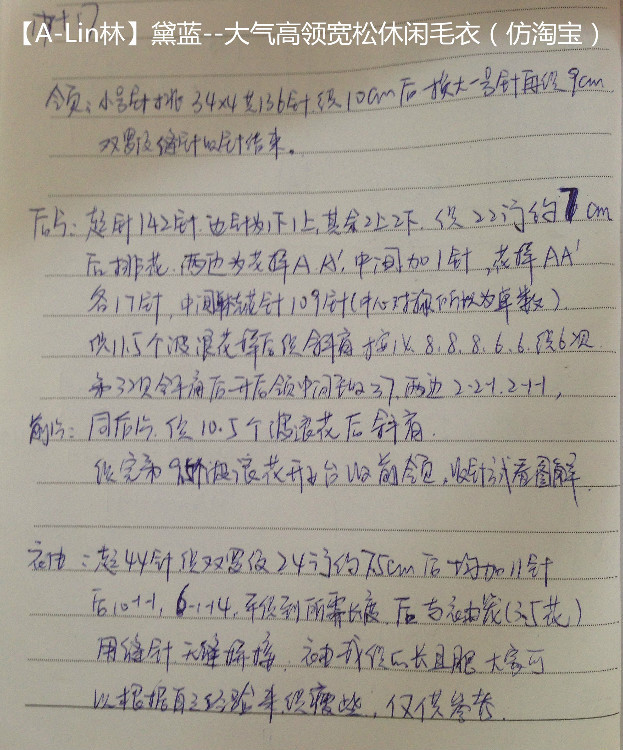 【A-Lin林】黛蓝--大气高领宽松休闲毛衣（仿淘宝）
领：小号针挑 34x4共136针织10cm后换大一号针再织9cm
双罗纹缝针收针结束。
后片：起针142针.边针为1下1上,其余2上2下.织22行约7cm
后排花.两边为花样A A',中间加1针,花样AA'
各17针,中间花针109针(中心对称所以为单数).
织11.5个波浪花样后织斜肩 8.8.8.6.6.织6次
第3次斜肩后开后领中间收37.两边2-2-1.2-1-1,
前片：同后片.织10.5个波浪花后斜肩.
织完第9.5个波浪花开始收前领,收针试看图解.
袖：起44针织双罗纹24行约7.5cm后均加11针
后10-1-1,6-1-14,平织到所需长度.后与袖窿(3.5花)
用缝针无缝拼接.袖我织的长且肥大家可
以根据自己经验来织瘦些,仅供参考.